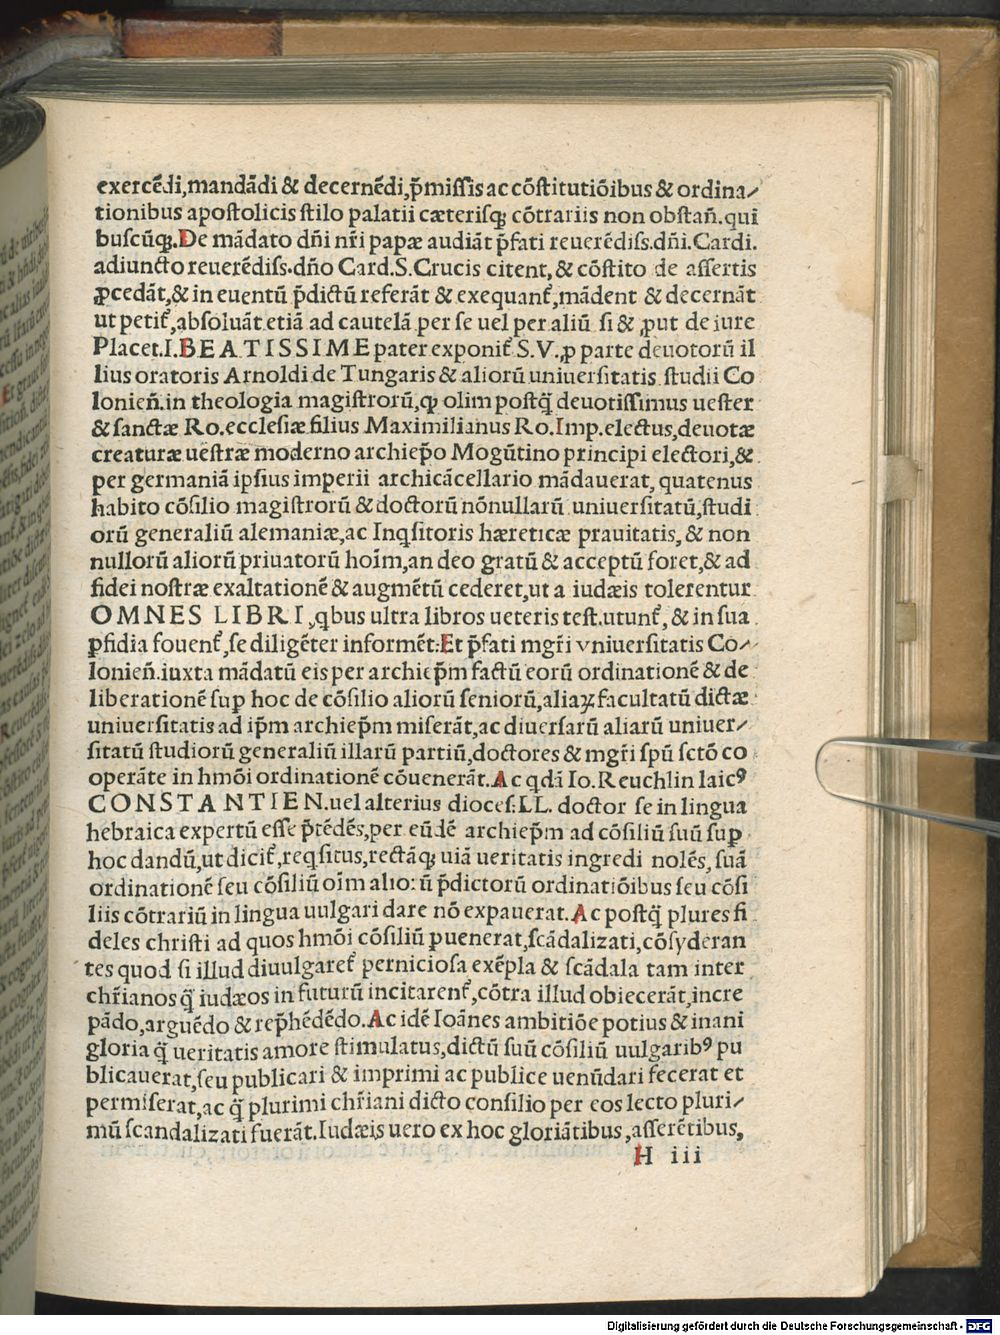 exercẽdi,mandãdi & decernẽdi,p̃missis ac cõstitutiõibus & ordina⸗
tionibus apostolicis stilo palatii cæterisq; cõtrariis non obstañ.qui
buscũq;.De mãdato dñi nr̃i papæ audiãt p̃fati reuerẽdiss.dñi.Cardi.
adiuncto reuerẽdiss.dño Card.S.Crucis citent,& cõstito de assertis
ꝓcedãt,& in euentũ p̃dictũ referãt & exequant᷑,mãdent & decernãt
ut petit᷑,absoluãt etiã ad cautelã per se uel per aliũ si & ꝓut de iure
Placet.I.BEATISSIME pater exponit᷑ S.V.ꝓ parte deuotorũ il
lius oratoris Arnoldi de Tungaris & aliorũ uniuersitatis studii Co
lonieñ.in theologia magistrorũ,ꝙ olim postq̃ deuotissimus uester
& sanctæ Ro.ecclesiæ filius Maximilianus Ro.Imp.electus,deuotæ
creaturæ uestræ moderno archiep̃o Mogũtino principi electori,&
per germaniã ipsius imperii archicãcellario mãdauerat, quatenus
habito cõsilio magistrorũ & doctorũ nõnullarũ uniuersitatũ,studi
orũ generaliũ alemaniæ,ac Inqsitoris hæreticæ prauitatis, & non
nullorũ aliorũ priuatorũ hoĩm,an deo gratũ & acceptũ foret,& ad
fidei nostræ exaltationẽ & augmẽtũ cederet,ut a iudæis tolerentur
OMNES LIBRI,qbus ultra libros ueteris test.utunt᷑, & in sua
ꝑfidia fouent᷑,se diligẽter informẽt:Et p̃fati mgr̃i vniuersitatis Co⸗
lonieñ.iuxta mãdatũ eis per archiep̃m factũ eorũ ordinationẽ & de
liberationẽ suꝑ hoc de cõsilio aliorũ seniorũ,aliaꝝ facultatũ dictæ
uniuersitatis ad ip̃m archiep̃m miserãt,ac diuersarũ aliarũ uniuer⸗
sitatũ studiorũ generaliũ illarũ partiũ,doctores & mgr̃i spũ sctõ co
operãte in hmõi ordinationẽ cõuenerãt.Ac qdã Io.Reuchlin laicꝰ
CONSTANTIEN.uel alterius dioces.LL. doctor se in lingua
hebraica expertũ esse p̃tẽdẽs,per eũdẽ archiep̃m ad cõsiliũ suũ suꝑ
hoc dandũ,ut dicit᷑,reqsitus,rectãq; uiã ueritatis ingredi nolẽs, suã
ordinationẽ seu cõsiliũ oĩm alioꝛũ p̃dictorũ ordinatiõibus seu cõsi
liis cõtrariũ in lingua uulgari dare nõ expauerat.Ac postq̃ plures fi
deles christi ad quos hmõi cõsiliũ ꝑuenerat,scãdalizati,cõsyderan
tes quod si illud diuulgaret᷑ perniciosa exẽpla & scãdala tam inter
chr̃ianos q̃ iudæos in futurũ incitarent᷑,cõtra illud obiecerãt,incre
pãdo,arguẽdo & rep̃hẽdẽdo.Ac idẽ Ioãnes ambitiõe potius & inani
gloria q̃ ueritatis amore stimulatus,dictũ suũ cõsiliũ uulgaribꝰ pu
blicauerat,seu publicari & imprimi ac publice uenũdari fecerat et
permiserat,ac q̃ plurimi chr̃iani dicto consilio per eos lecto pluri⸗
mũ scandalizati fuerãt.Iudæis uero ex hoc gloriãtibus,asserẽtibus,
H iii
Digitalisierung gefördert durch die Deutsche Forschungsgemeinschaft - DFG